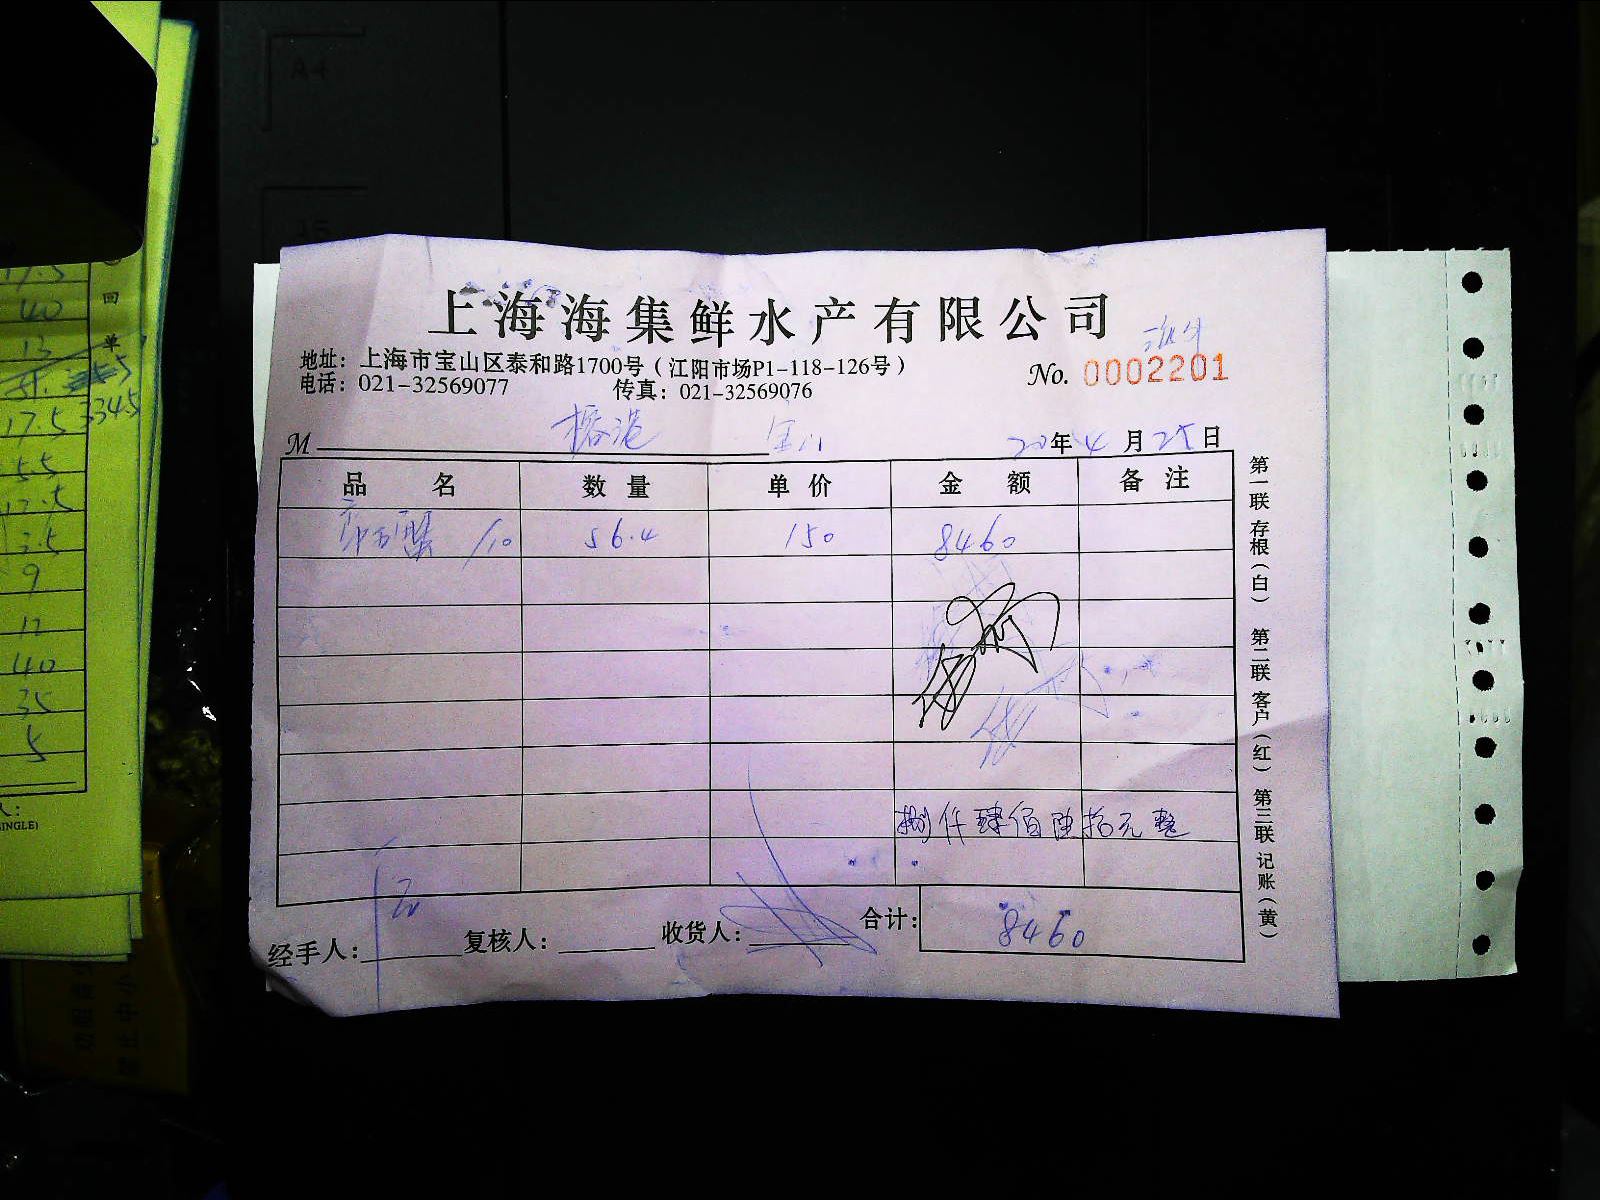 上海海集鲜水产有限公司
地址：上海市宝山区泰和路1700号（江阳市场P1-118-126号）
No. 0002201
电话：021-32569077 传真：021-32569076
M 榕港 年4月25日
品名 数量 单价 金额 备注
蟹 /10 56.4 150 8460
捌仟肆佰陆拾元整
经手人： 复核人： 收货人： 合计：8460
第一联 存根（白） 第二联 客户（红） 第三联 记账（黄）
A4
回单
17.5
40
13
17.5 334.5
5.5
17.5
3.5
9
12
40
35
5
人：
SINGLE)